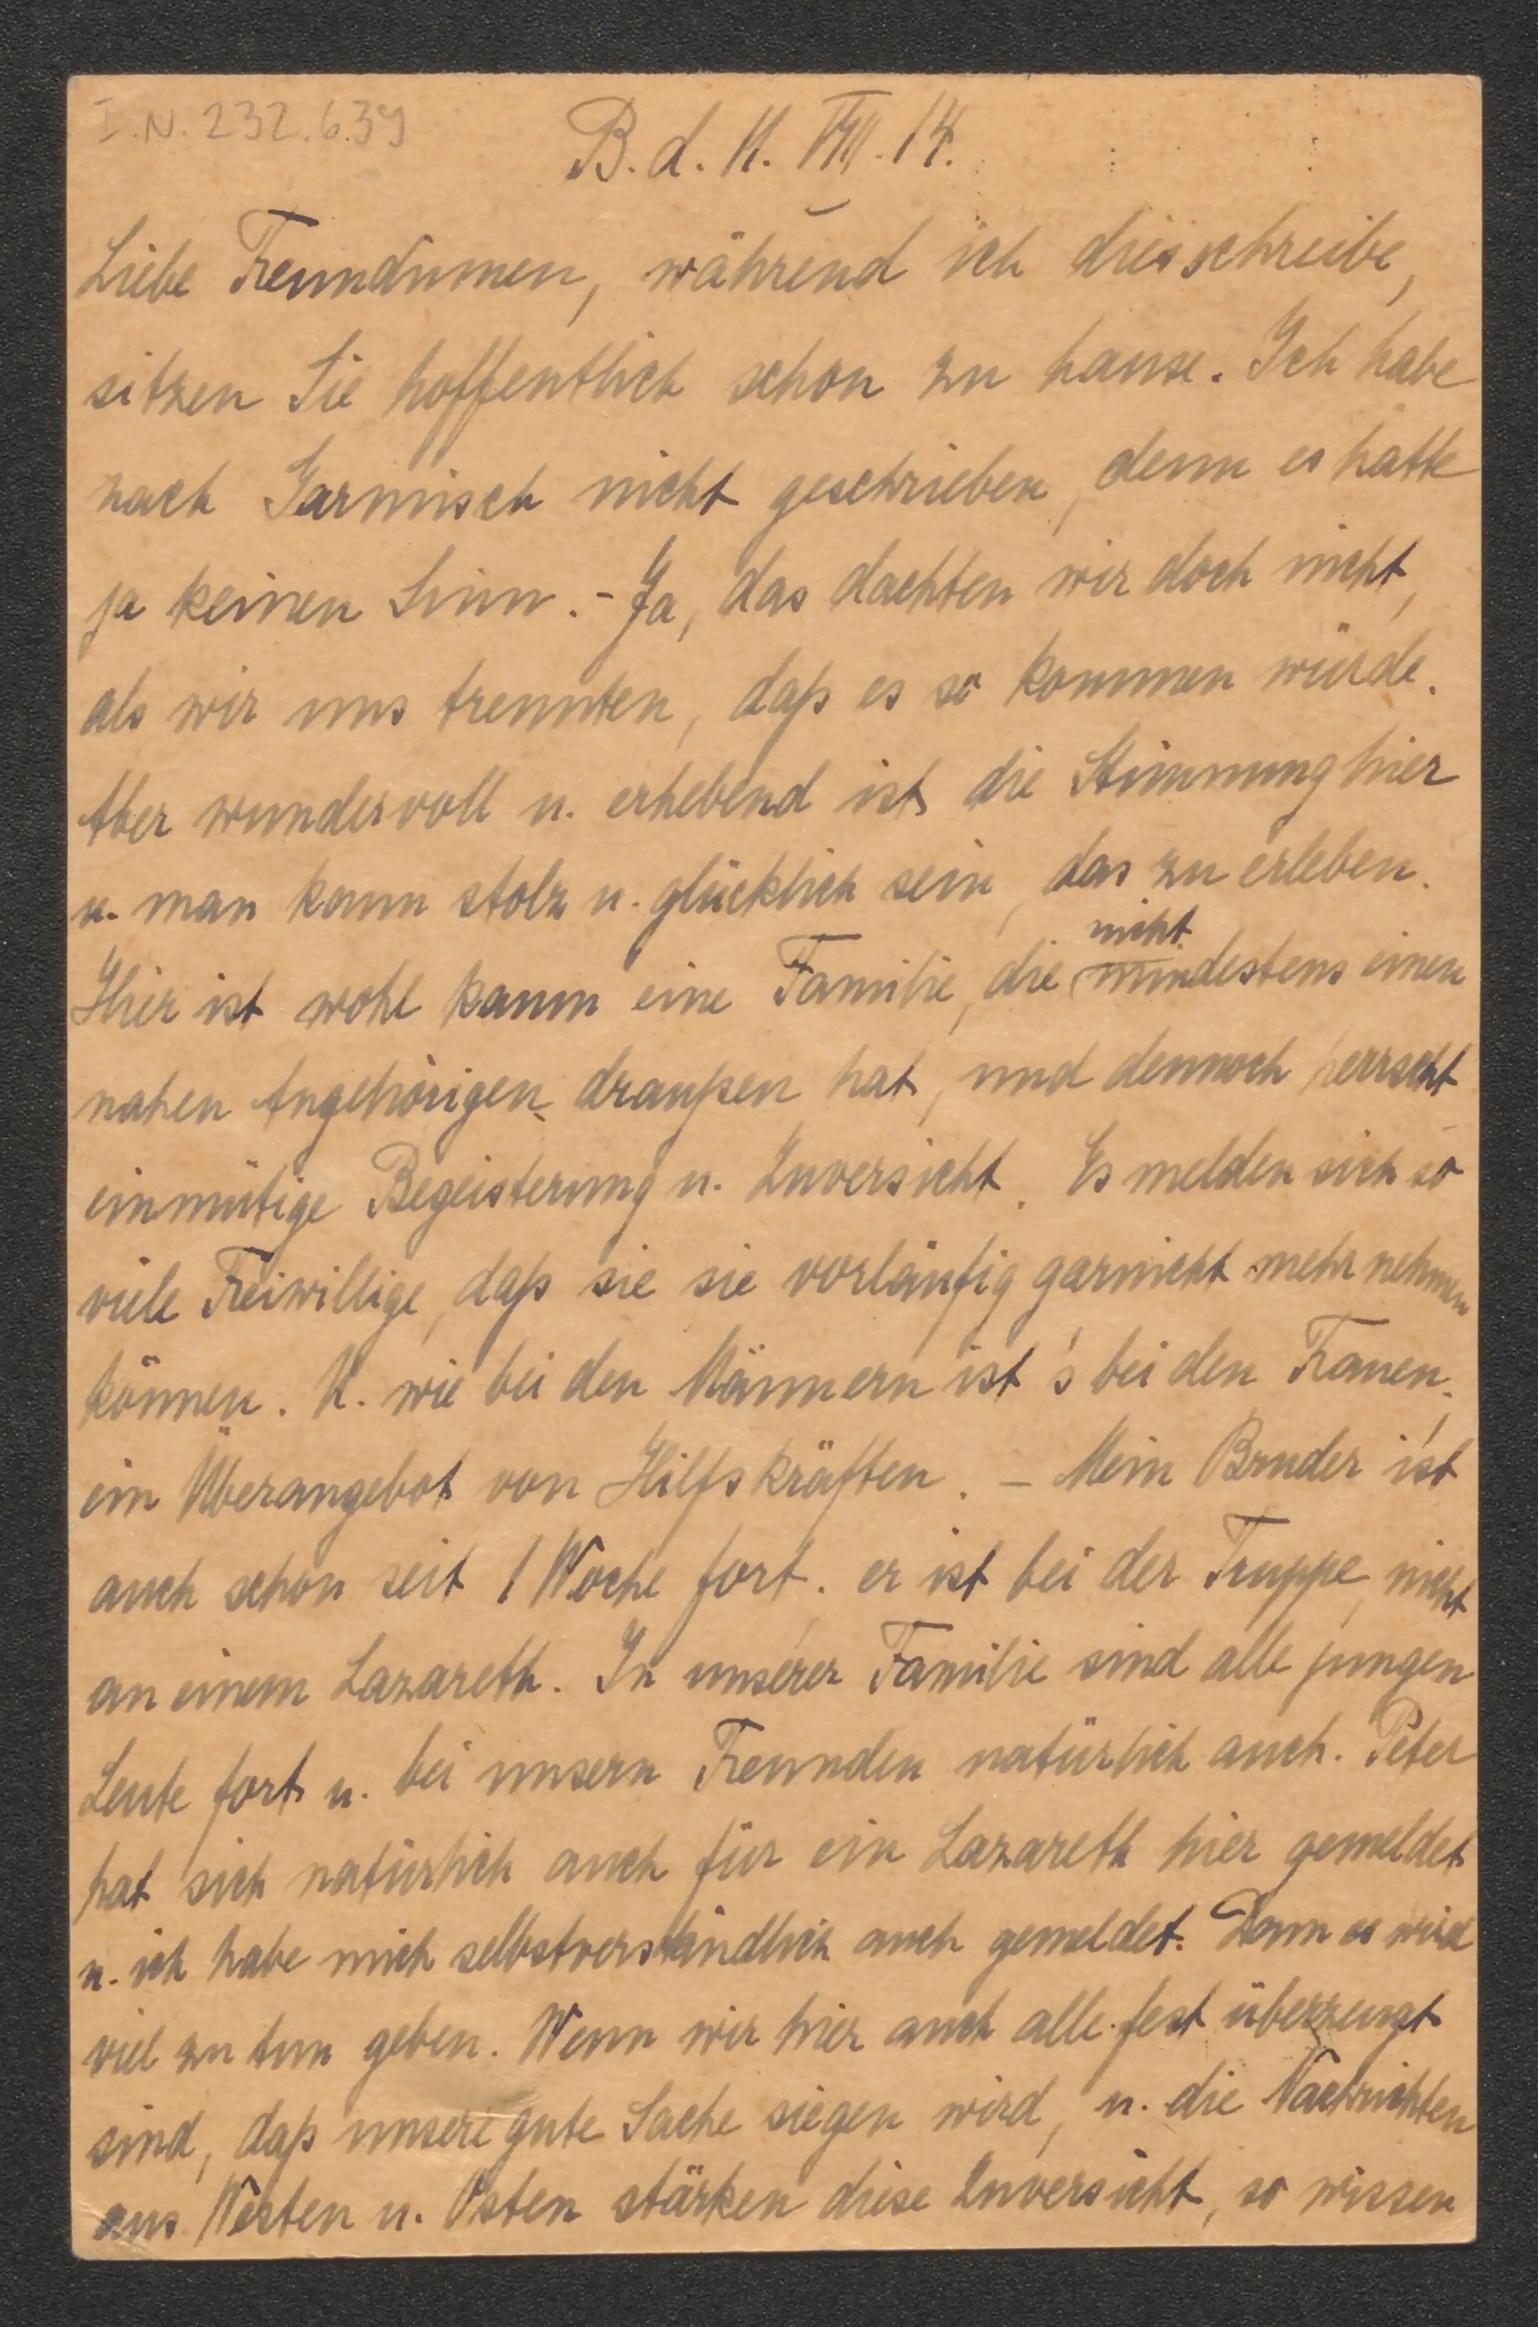 I.N. 232.639
B. d. 11. VIII. 14.
Liebe Freundinnen, während ich dies schreibe,
sitzen Sie hoffentlich schon zu hause. Ich habe
nach Garmisch nicht geschrieben, denn es hatte
ja keinen Sinn. - Ja, das dachten wir doch nicht,
als wir uns trennten, daß es so kommen würde.
Aber wundervoll u. erhebend ist die Stimmung hier
u. man kann stolz u. glücklich sein, das zu erleben.
nicht
Hier ist wohl kaum eine Familie, die mindestens einen
nahen Angehörigen draußen hat, und dennoch herrscht
einmütige Begeisterung u. Zuversicht. Es melden sich so
viele Freiwillige, daß sie sie vorläufig garnicht mehr nehmen
können. U. wie bei den Männern ist's bei den Frauen:
ein Überangebot von Hilfskräften. - Mein Bruder ist
auch schon seit 1 Woche fort. er ist bei der Truppe, nicht
an einem Lazareth. In unserer Familie sind alle jungen
Leute fort u. bei unsern Freunden natürlich auch. Peter
hat sich natürlich auch für ein Lazareth hier gemeldet
u. ich habe mich selbstverständlich auch gemeldet. Denn es wird
viel zu tun geben. Wenn wir hier auch alle fest überzeugt
sind, daß unsere gute Sache siegen wird, u. die Nachrichten
aus Westen u. Osten stärken diese Zuversicht, so wissen